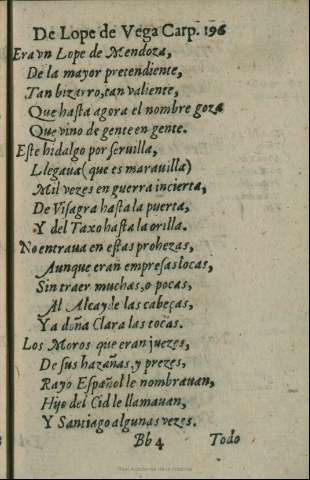 De Lope de Vega Carp. 196
Era vn Lope de Mendoza,
De la mayor pretendiente,
Tan bizarro, tan valiente,
Que hasta agora el nombre goza
Que vino de gente en gente.
Este hidalgo por seruilla,
Llegaua (que es marauilla)
Mil vezes en guerra incierta,
De Visagra hasta la puerta,
Y del Taxo hasta la orilla.
No entraua en estas prohezas,
Aunque eran empresas locas,
Sin traer muchas, o pocas,
Al Alcayde las cabeças,
Y a doña Clara las tocas.
Los Moros que eran juezes,
De sus hazañas, y prezes,
Rayo Español le nombrauan,
Hijo del Cid le llamauan,
Y Santiago algunas vezes.
Bb 4 Todo